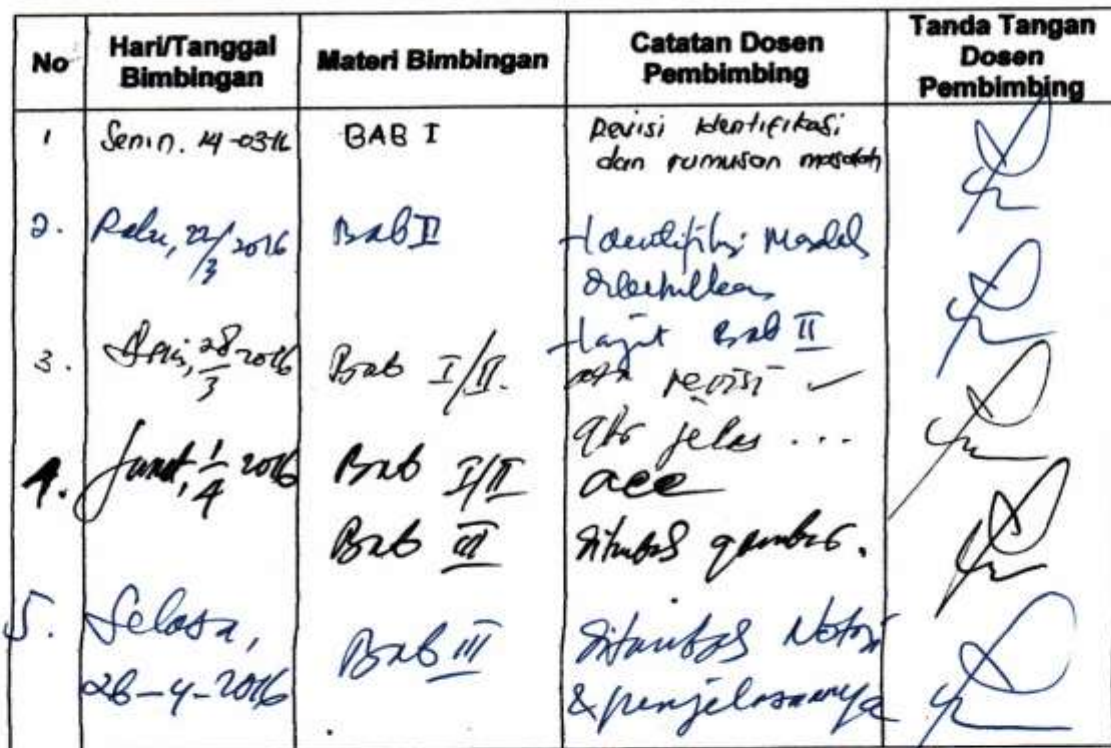 No Hari/Tanggal Bimbingan Materi Bimbingan Catatan Dosen Pembimbing Tanda Tangan Dosen Pembimbing
1 Senin. 14-03-16 BAB I Revisi Identifikasi
dan rumusan masalah
2. Rabu, 22/3 2016 Bab II Identifikasi Masalah
lanjut Bab II
3. 28/3 2016 Bab I/II. revisi ✓
jelas ...
4. Jumat, 1/4 2016 Bab I/II acc
Bab III ditambah gambar.
5. Selasa, Bab III ditambah Notasi
26-4-2016 & penjelasannya